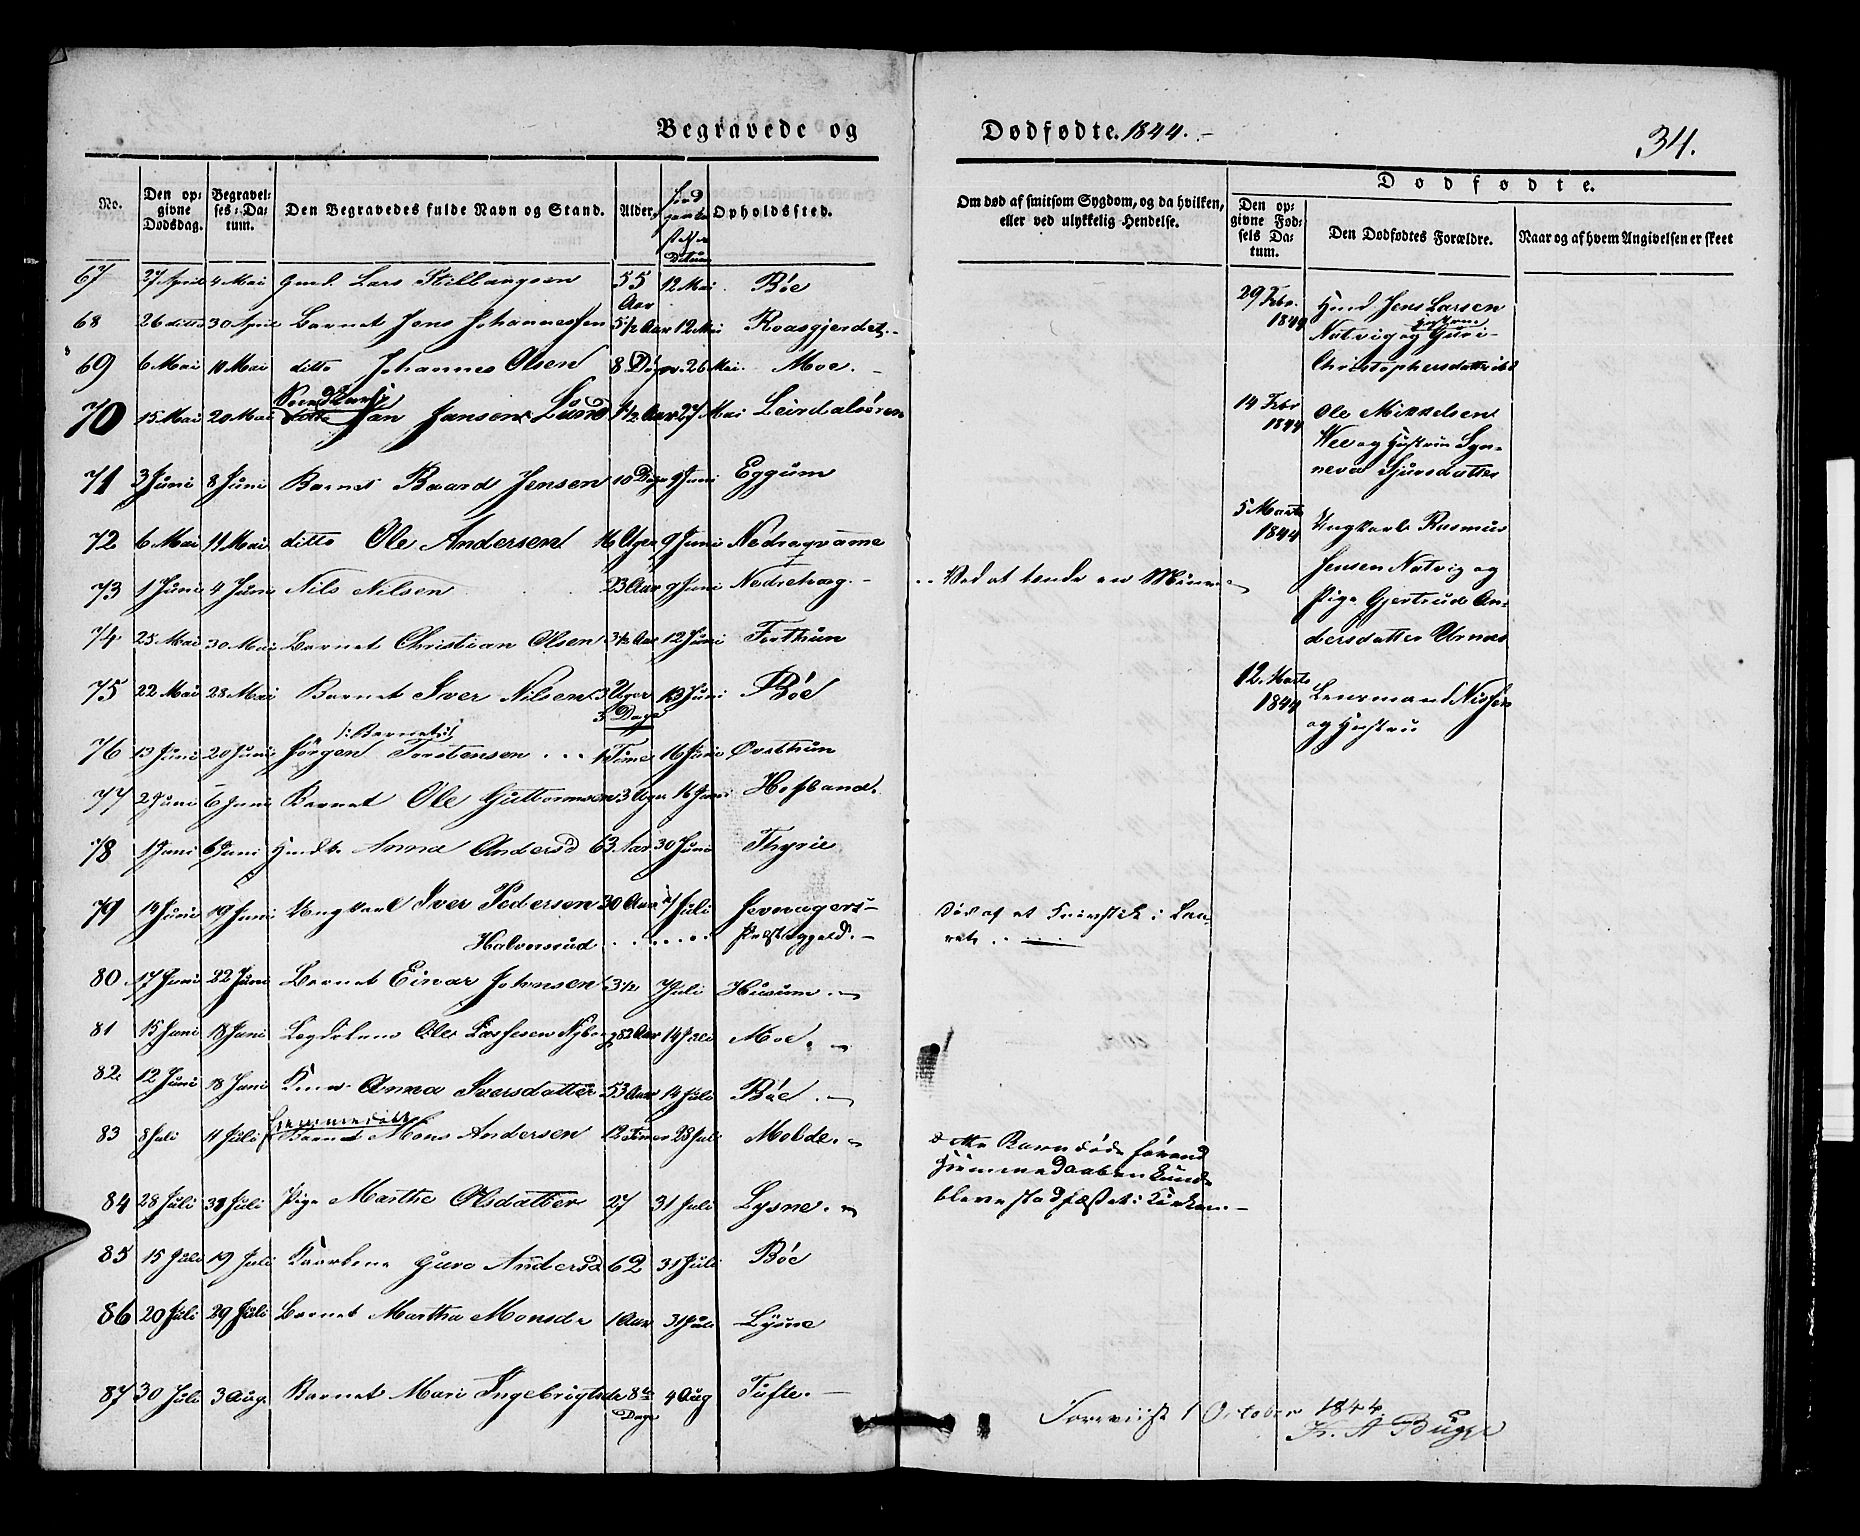 Begravede og
Dødfødte. 1844.
34.
No.
Den opgivne Dødsdag.
Begravelses-Datum.
Den Begravedes fulde Navn og Stand.
Alder.
Opholdssted.
Om død af smitsom Sygdom, og da hvilken, eller ved ulykkelig Hendelse.
Dødfødte.
Den opgivne Fødsels Datum.
Den Dødfødtes Forældre.
Naar og af hvem Angivelsen er skeet
67 27 April 4 Mai Gmd. Lars 55 Aar 12 Mai Bøe
68 26 ditto 30 April Barnet Jens Johannessen 5½ Aar 12 Mai Roasgjerdet
69 6 Mai 10 Mai ditto Johannes Olsen 8 26 Mai Moe
70 15 Mai 20 Mai Jan Jansen 27 Mai Leirdalsøren
71 3 Juni 8 Juni Barnet Baard Jensen 10 Dage 9 Juni Eggum
72 6 Mai 11 Mai ditto Ole Andersen 16 Uger 9 Juni
73 1 Juni 4 Juni Nils Nilsen 23 Aar 9 Juni
74 25 Mai 30 Mai Barnet Christian Olsen 3½ Aar 12 Juni Forthun
75 22 Mai 28 Mai Barnet Iver Nilsen 3 Uger 3 Dage 13 Juni Bøe
/:Barnet:/
76 13 Juni 20 Juni Jørgen Torstensen 1 Time 16 Juni
77 2 Juni 6 Juni Barnet Ole Guttormsen 3 Uger 16 Juni
78 1 Juni 6 Juni Anna Andersd 63 Aar 30 Juni
79 14 Juni 19 Juni Ungkarl Iver Pedersen 30 Aar 7 Juli Jevnagers
Halvorsrud Præstegjeld.
80 17 Juni 22 Juni Barnet Einar Johnsen 3½ 7 Juli Husum
81 15 Juni 18 Juni Ole 82 Aar 14 Juli Moe.
82 12 Juni 18 Juni Anna Iversdatter 53 Aar 14 Juli Bøe
hjemmedøbt
83 8 Juli 11 Juli Barnet Mons Andersen 12 Timer 28 Juli Molde.
84 28 Juli 31 Juli Pige Marthe Olsdatter 27 31 Juli Lysne.
85 15 Juli 19 Juli Guro Andersd 62 31 Juli Bøe
86 20 Juli 29 Juli Barnet Martha Monsdr 1 Aar 31 Juli Lysne
87 30 Juli 3 Aug. Barnet Mari Ingebrigtsdr 8 Dage 4 Aug Tufte.
Ved at tende en Mine
Død af et Knivstik i Laa-
ret
dette Barn døde førend
Hjemmedaaben kunde
bleve stadfæstet i Kirken.
29 Febr. 1844
Jens Larsen
Natvig og Hustrue Guri
Christophersdatter
14 Febr 1844
Ole Mikkelsen
Wee og Hustrue Syn-
neva Sjursdatter
5 Marts 1844
Ungkarl Rasmus
Jensen Natvig og
Pige Gjertrud An-
dersdatter Urnes
12 Marts 1844
Lensmand
og Hustru
Foreviist 1 October 1844
Bugge